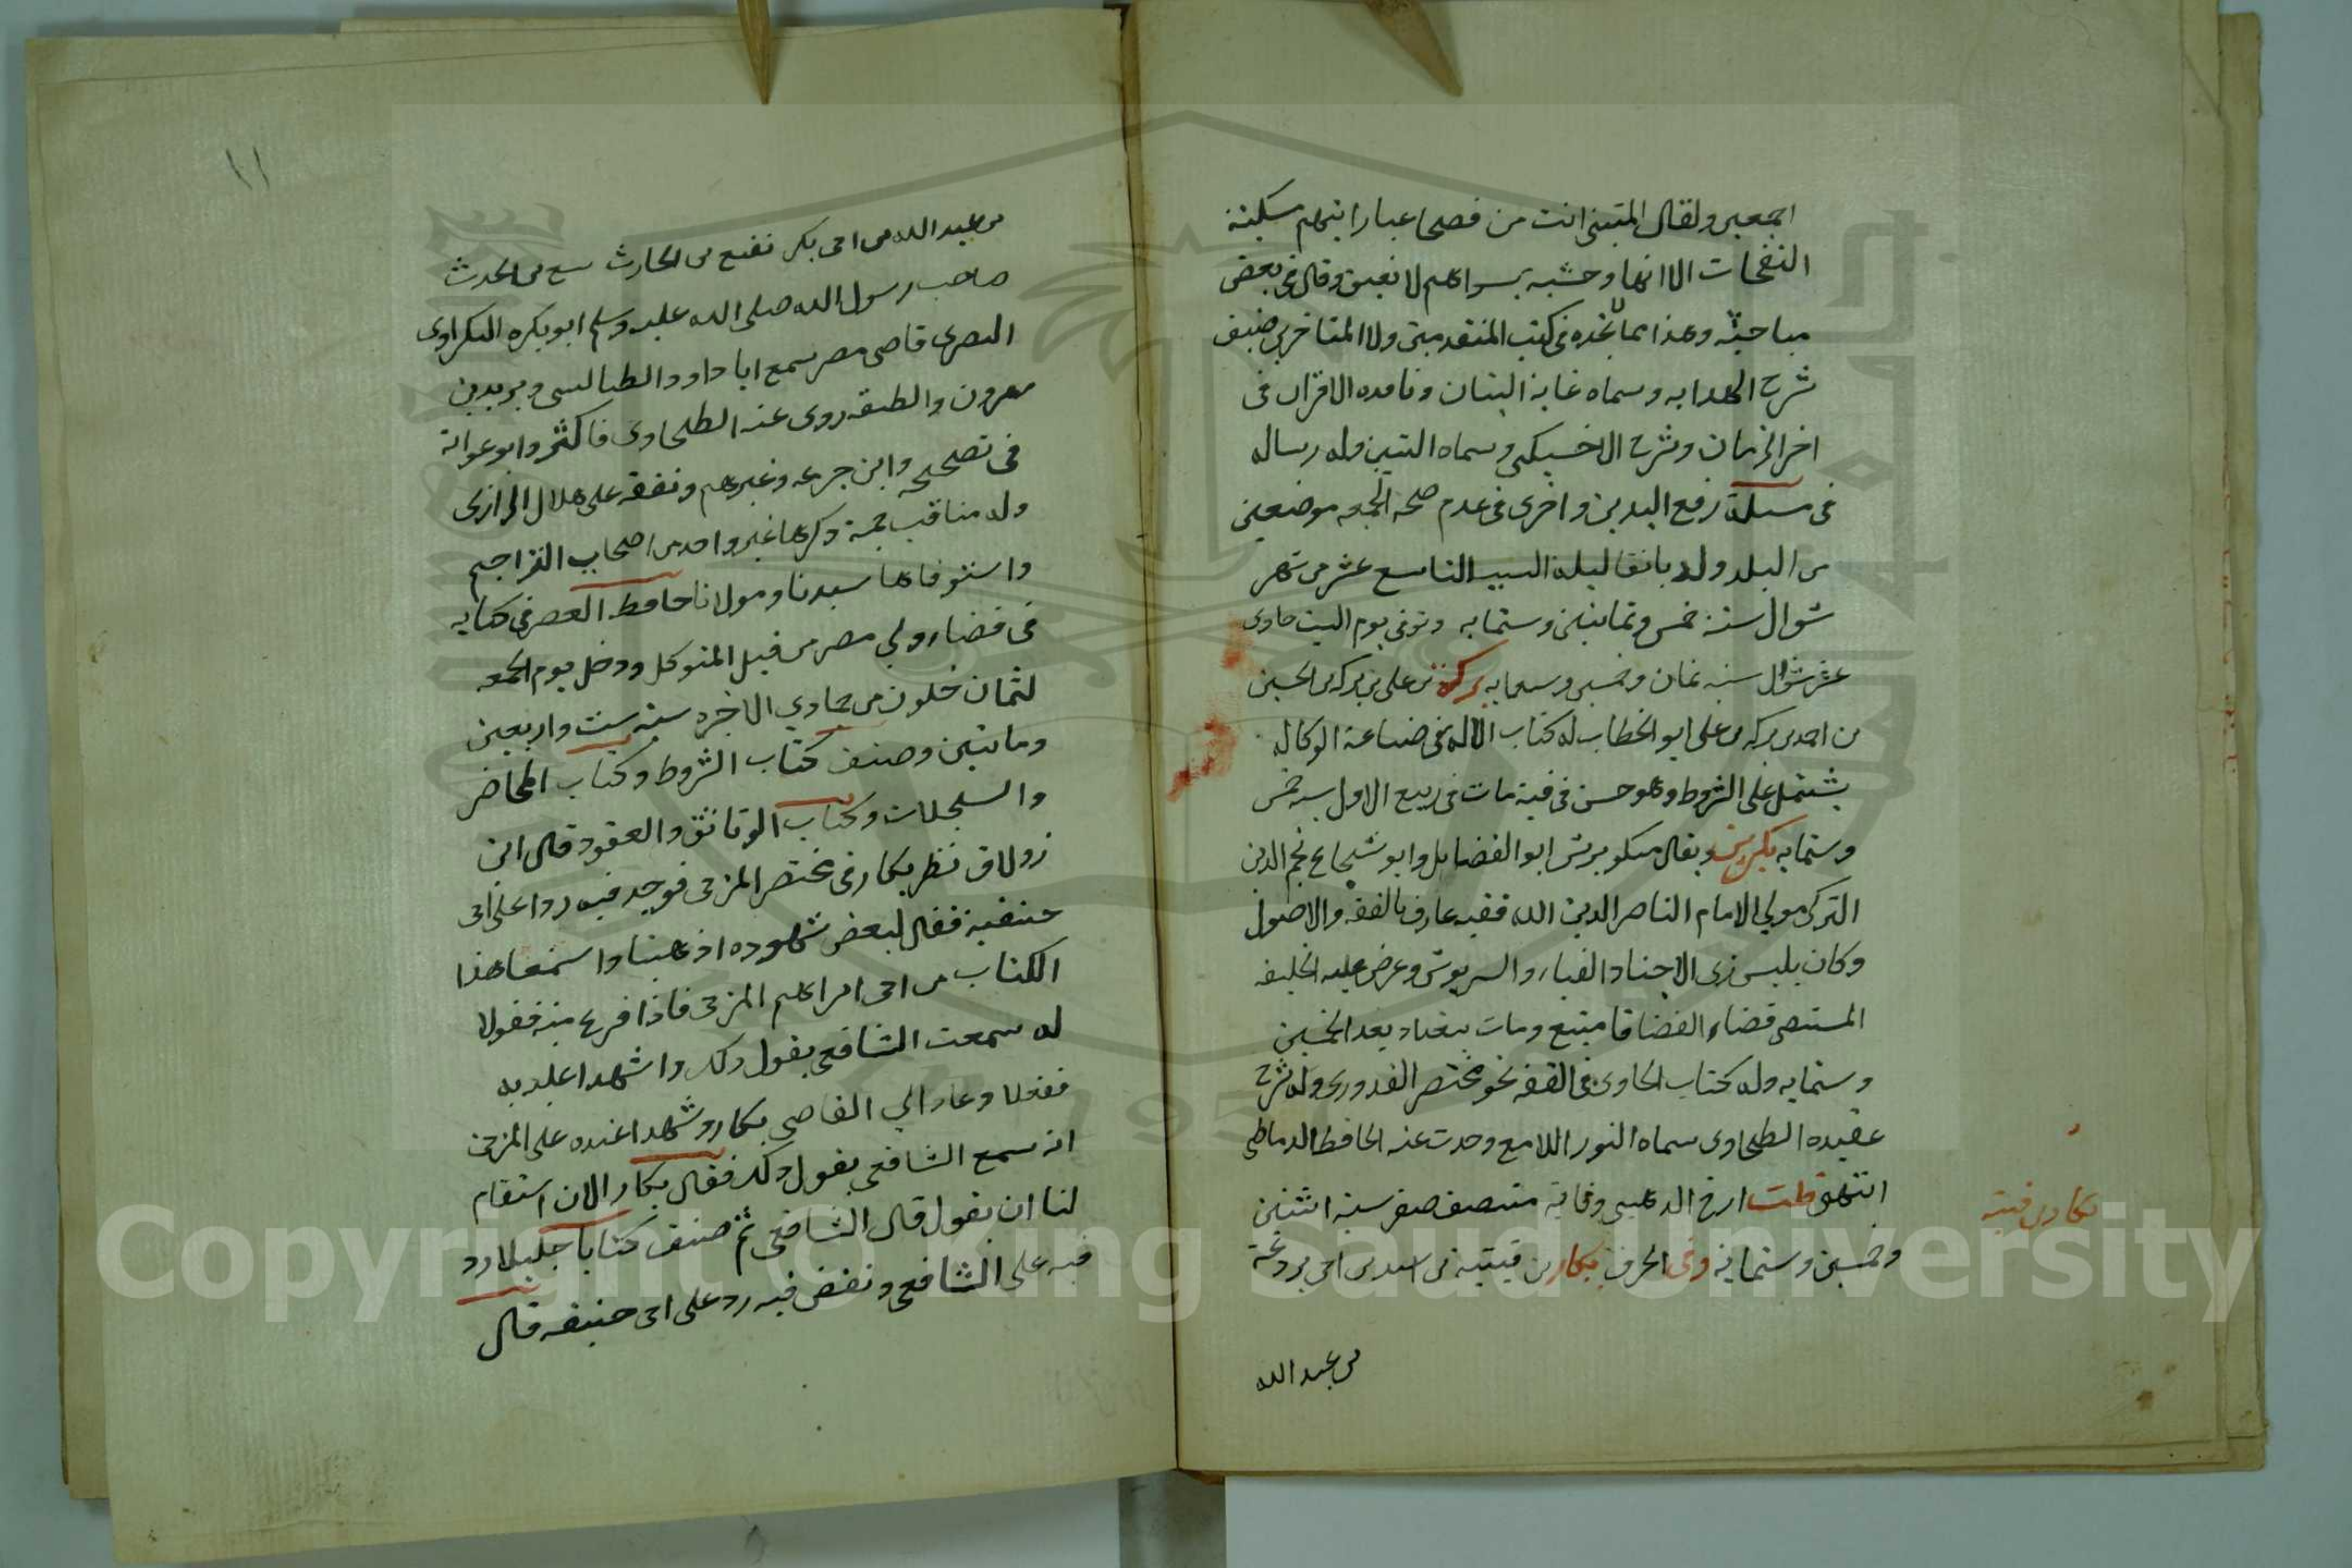 اجمعين ولقال المتبنى انت من فصحا عباراتهم سكينة
النفحات الا انها وحشية بسواهم لا تعبق وقال في بعض
مباحثه وهذا مما لا تجده في كتب المتقدمين ولا المتاخرين صنف
شرح الهدايه وسماه غاية البيان ونادرة الاقران في
اخر الزمان وشرح الاخسيكتى وسماه التبيين وله رساله
في مسلة رفع اليدين واخرى في عدم صحة الجمعه موضعين
من البلد ولد باتقا ليلة السبت التاسع عشر من شهر
شوال سنة خمس وثمانين وستمايه وتوفي يوم السبت حادى
عشر شوال سنه ثمان وخمسين وسبعمايه بركة بن على بن بركه بن الحسين
بن احمد بن بركه بن على ابو الخطاب له كتاب الاله في صناعة الوكاله
يشتمل على الشروط وهو حسن في فنه مات في ربيع الاول سنه خمس
وستمايه بكبرس ويقال منكوبرس ابو الفضايل وابو شجاع نجم الدين
التركى مولي الامام الناصر لدين الله فقيه عارف بالفقه والاصول
وكان يلبس زى الاجناد القباء والسربوش وعرض عليه الخليفه
المستنصر قضاء القضاة فامتنع ومات ببغداد بعد الخمسين
وستمايه وله كتاب الحاوى في الفقه نحو مختصر القدورى وله شرح
عقيده الطحاوى سماه النور اللامع وحدث عنه الحافظ الدمياطى
انتهى قلت ارخ الذهبى وفاته منتصف صفر سنة اثنتين
وخمسين وستماية وفي الحرف بكار بن قتيبة بن اسد بن ابى بردعة
بن عبد الله
بكار بن قتيبة
١١
بن عبيد الله بن ابى بكر نفيع بن الحارث
صاحب رسول الله صلى الله عليه وسلم ابو بكره البكراوى
البصرى قاضى مصر سمع ابا داود الطيالسى ويزيد بن
هرون والطبقه روى عنه الطحاوى فاكثر وابو عوانة
في صحيحه وابن خزيمه وغيرهم وتفقه على هلال الرازى
وله مناقب جمة ذكرها غير واحد من اصحاب التراجم
واستوفاها سيدنا ومولانا حافظ العصر في كتابه
في قضاه ولي مصر من قبل المتوكل ودخل يوم الجمعه
لثمان خلون من جمادي الاخره سنة ست واربعين
وماتين وصنف كتاب الشروط وكتاب المحاضر
والسجلات وكتاب الوثائق والعقود قال ابن
زولاق نظر بكار في مختصر المزنى فوجد فيه ردا على ابى
حنفية فقال لبعض شهوده اذهبا واسمعا هذا
الكتاب من ابى ابراهيم المزنى فاذا فرغ منه فقولا
له سمعت الشافعى يقول ذلك واشهدا عليه به
ففعلا وعادا الي القاضى بكار وشهدا عنده على المزنى
انه سمع الشافعى يقول ذلك فقال بكار الان استقام
لنا ان نقول قال الشافعى ثم صنف كتابا جليلا رد
فيه على الشافعى ونقض فيه رده على ابى حنيفه قال
Copyright © King Saud University
1957